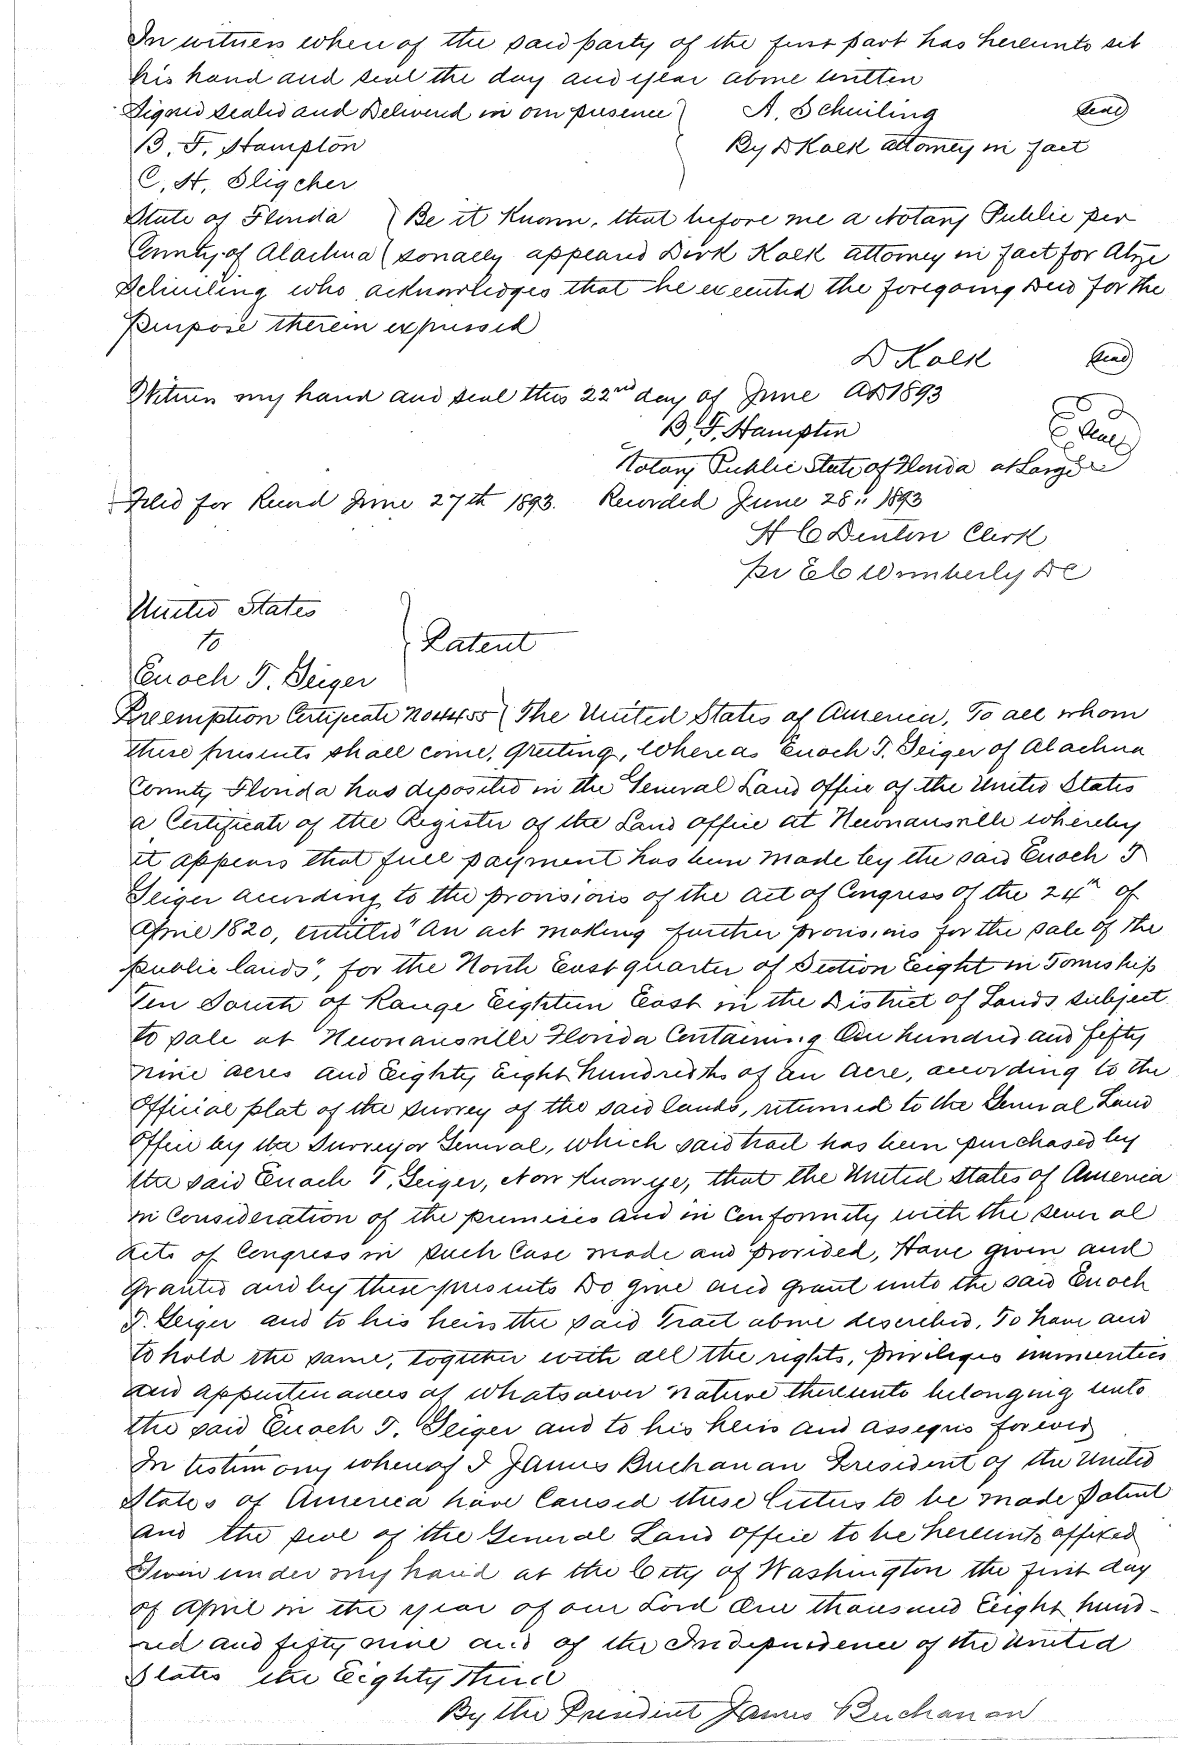 In witness where of the said party of the first part has hereunto set
his hand and seal the day and year above written
Signed sealed and Delivered in our presence } A. Schuiling Seal
B. F. Hampton By D Kolk attorney in fact
C. H. Sligcher
State of Florida } Be it Known, that before me a Notary Public per
County of Alachua ( sonally appeared Dirk Kolk attorney in fact for Atze
Schuiling who acknowledges that he executed the foregoing Deed for the
purpose therein expressed
D Kolk Seal
Witness my hand and seal this 22nd day of June AD 1893
B. F. Hampton Seal
Notary Public State of Florida at Large
Filed for Record June 27th 1893. Recorded June 28" 1893
H C Denton Clerk
pr E C Wimberly DC
United States
to } Patent
Enoch T. Geiger
Preemption Certificate No 4455 ( The United States of America, To all whom
these presents shall come, greeting, Whereas Enoch T. Geiger of Alachua
County Florida has deposited in the General Land office of the United States
a Certificate of the Register of the Land office at Newnansville whereby
it appears that full payment has been made by the said Enoch T
Geiger according to the provisions of the act of Congress of the 24th of
April 1820, entitled "An act making further provisions for the sale of the
public lands", for the North East quarter of Section Eight in Township
Ten South of Range Eighteen East in the District of Lands subject
to sale at Newnansville Florida Containing One hundred and fifty
nine acres and Eighty Eight hundredths of an acre, according to the
Official plat of the survey of the said lands, returned to the General Land
Office by the Surveyor General, which said tract has been purchased by
the said Enoch T. Geiger, Now Know ye, that the United States of America
in Consideration of the premises and in Conformity with the several
Acts of Congress in such Case made and provided, Have given and
Granted and by these presents Do give and grant unto the said Enoch
T. Geiger and to his heirs the said Tract above described, To have and
to hold the same, together with all the rights, privileges immunities
and appurtenances of whatsoever nature thereunto belonging unto
the said Enoch T. Geiger and to his heirs and assigns forever
In testimony whereof I James Buchanan President of the United
States of America have Caused these letters to be made Patent
and the seal of the General Land office to be hereunto affixed
Given under my hand at the City of Washington the first day
of April in the year of our Lord One thousand Eight hund-
red and fifty nine and of the Independence of the United
States the Eighty third
By the President James Buchanan